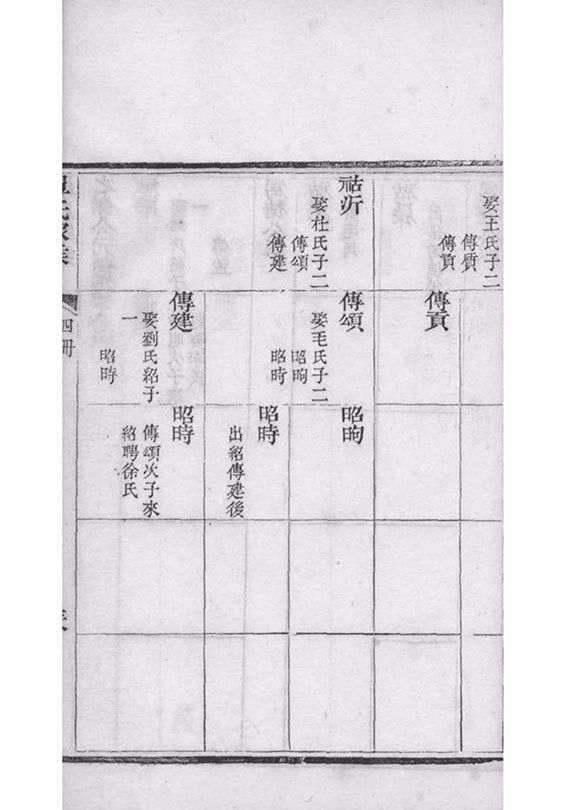 娶王氏子二
傳質
傳貢
傳貢
祜沂
娶杜氏子二
傳頌
傳建
傳頌
娶毛氏子二
昭昫
昭時
昭昫
昭時
出紹傳建後
傳建
娶劉氏紹子
一
昭時
昭時
傳頌次子來
紹聘徐氏
氏家乘
四冊